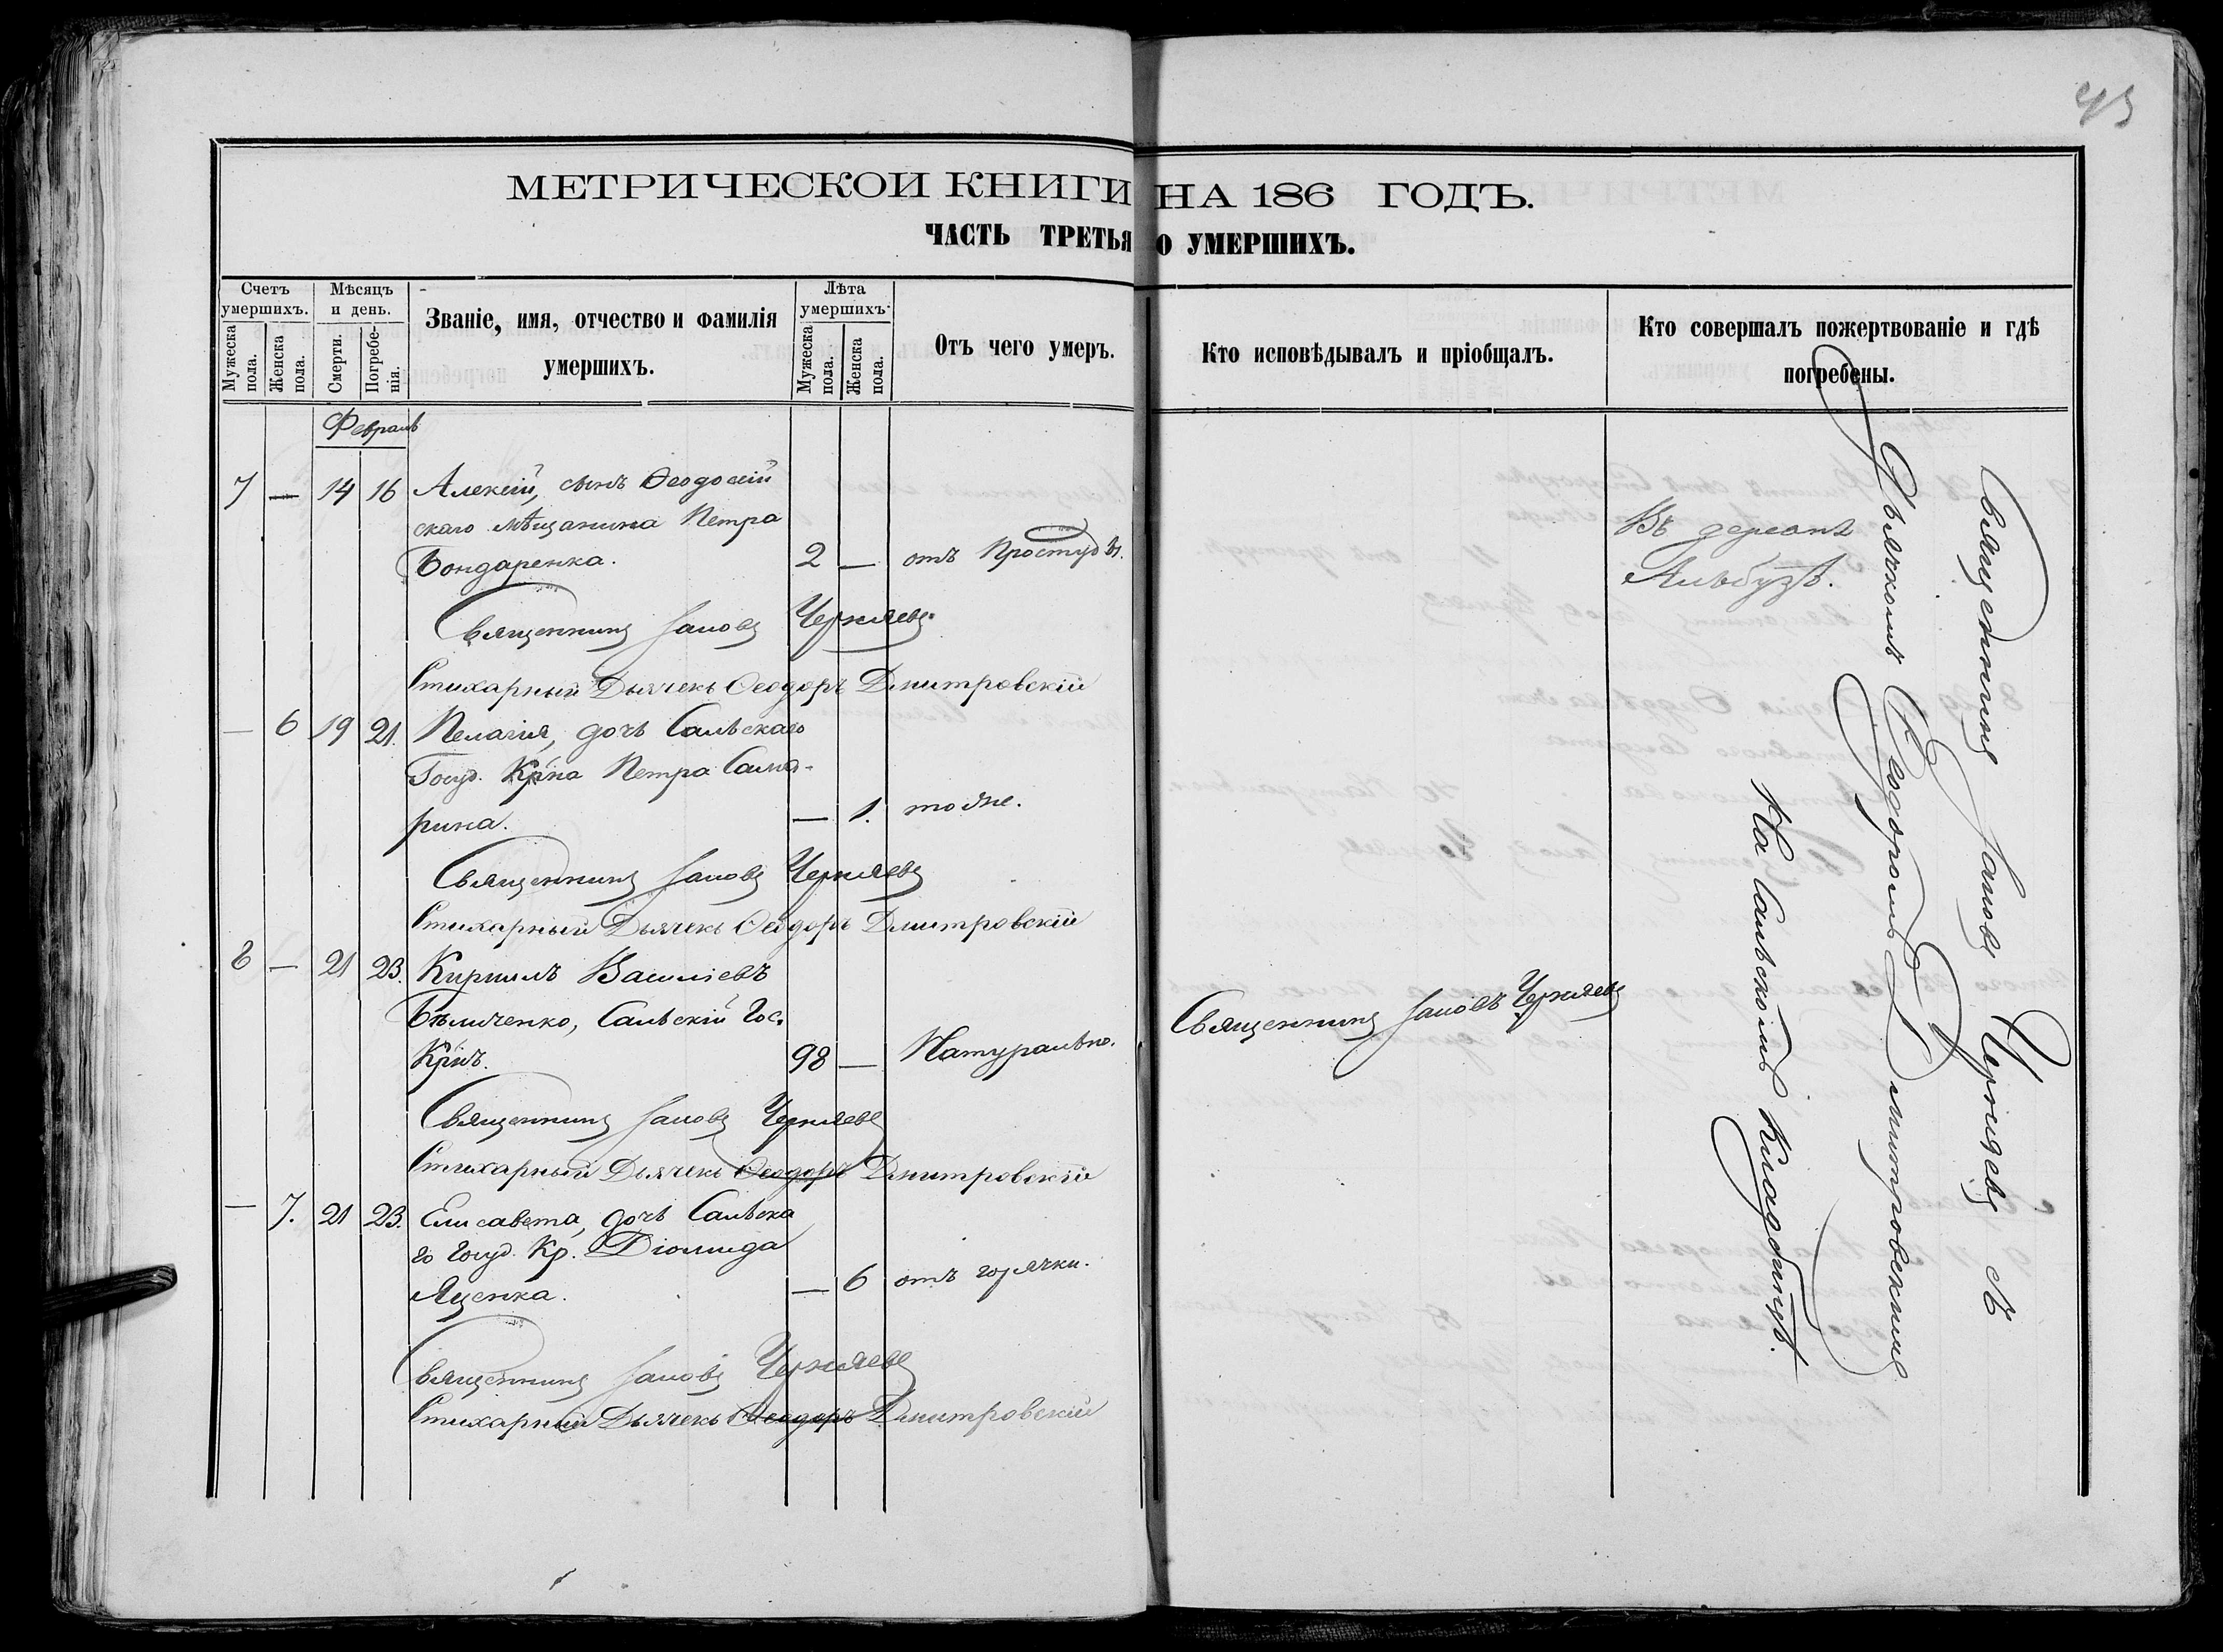 43
МЕТРИЧЕСКОЙ КНИГИ НА 186 ГОДЪ.
ЧАСТЬ ТРЕТЬЯ О УМЕРШИХЪ.
Счетъ умершихъ.
Мужеска пола.
Женска пола.
Мѣсяцъ и день.
Смерти.
Погребенія.
Званіе, имя, отчество и фамилія
умершихъ.
Лѣта умершихъ.
Мужеска пола.
Женска пола.
Отъ чего умеръ.
Кто исповѣдывалъ и пріобщалъ.
Кто совершалъ пожертвованіе и гдѣ
погребены.
Февраль
7 — 14 16 Алексій, сынъ Ѳеодосій
скаго мѣщанина Петра
Бондаренка. 2 — отъ Простуды.
Въ деревнѣ
Альбузѣ.
Священникъ Іаковъ Черняевъ
Стихарный Дьячекъ Ѳеодоръ Дмитровскій
— 6 19 21. Пелагія, дочь Сальскаго
Госуд. Кр͠на Петра Сама-
рина. — 1. тоже.
Священникъ Іаковъ Черняевъ
Стихарный Дьячекъ Ѳеодоръ Дмитровскій
8 — 21 23. Кириллъ Васильевъ
Бѣличенко, Сальскій Гос.
Кр͠нъ. 98 — Натурально. Священникъ Іаковъ Черняевъ
Священникъ Іаковъ Черняевъ
Стихарный Дьячекъ Ѳеодоръ Дмитровскій
— 7. 21 23. Елисавета, дочь Сальска
го Госуд. Кр. Діомида
Яценка. — 6 отъ горячки.
Священникъ Іаковъ Черняевъ
Стихарный Дьячекъ Ѳеодоръ Дмитровскій
Священникъ Іаковъ Черняевъ съ
Дьячкомъ Ѳеодоромъ Дмитровскимъ
На Сальскомъ Кладбищѣ.